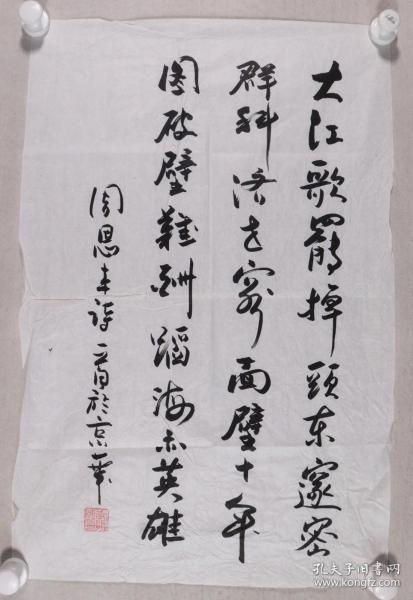 大江歌罷掉頭東邃密
群科济世穷面壁十年
图破壁難酬蹈海亦英雄
周恩来詩 於京華
孔夫子旧书网
www.kongfz.com